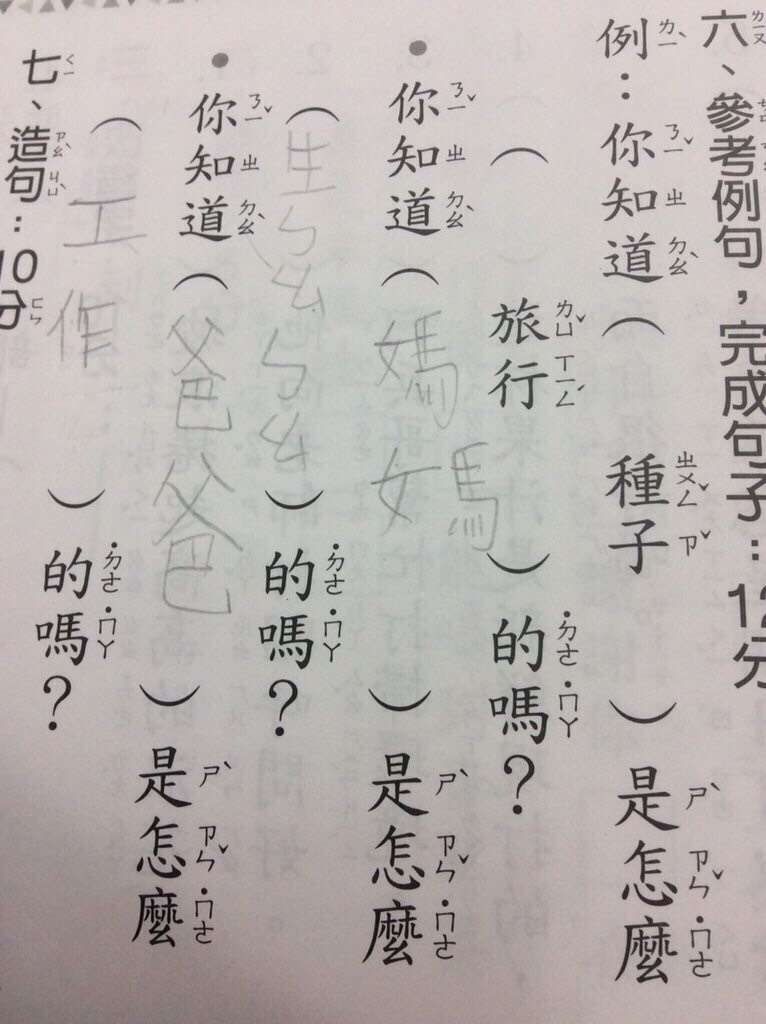 六、參考例句，完成句子：12分
例：你知道（種子）是怎麼
（旅行）的嗎？
•你知道（媽媽）是怎麼
（生ㄅㄠㄅㄠ）的嗎？
•你知道（爸爸）是怎麼
（工作）的嗎？
七、造句：10分